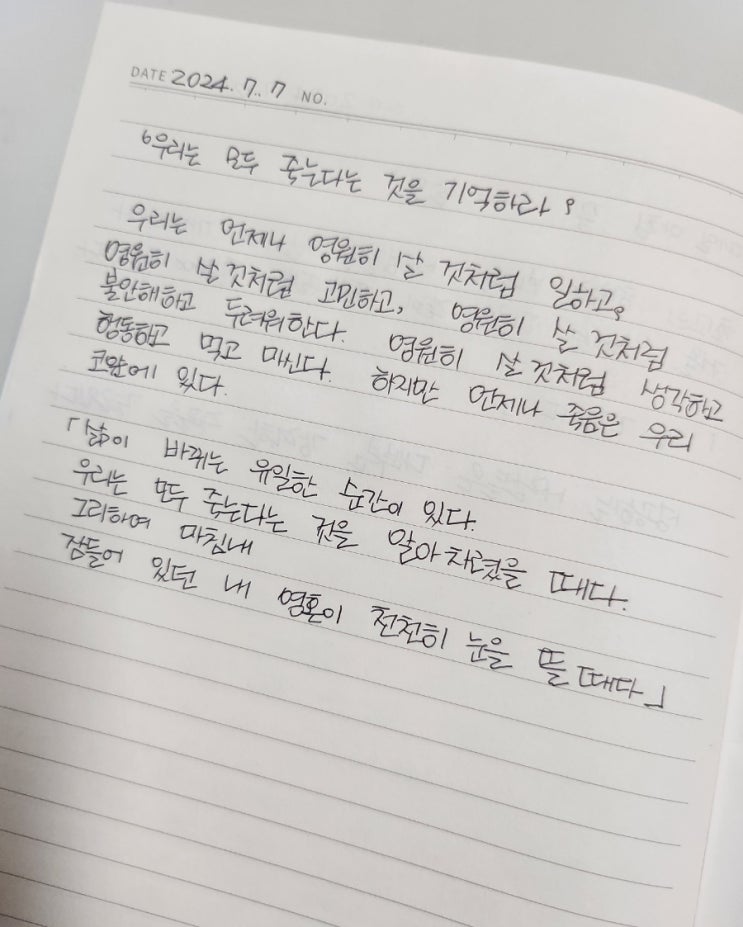 DATE 2024. 7. 7 NO.
"우리는 모두 죽는다는 것을 기억하라"
우리는 언제나 영원히 살 것처럼 일하고,
영원히 살 것처럼 고민하고, 영원히 살 것처럼
불안해하고 두려워한다. 영원히 살 것처럼 생각하고
행동하고 먹고 마신다. 하지만 언제나 죽음은 우리
코앞에 있다.
「삶이 바뀌는 유일한 순간이 있다.
우리는 모두 죽는다는 것을 알아차렸을 때다.
그리하여 마침내
잠들어 있던 내 영혼이 천천히 눈을 뜰 때다」